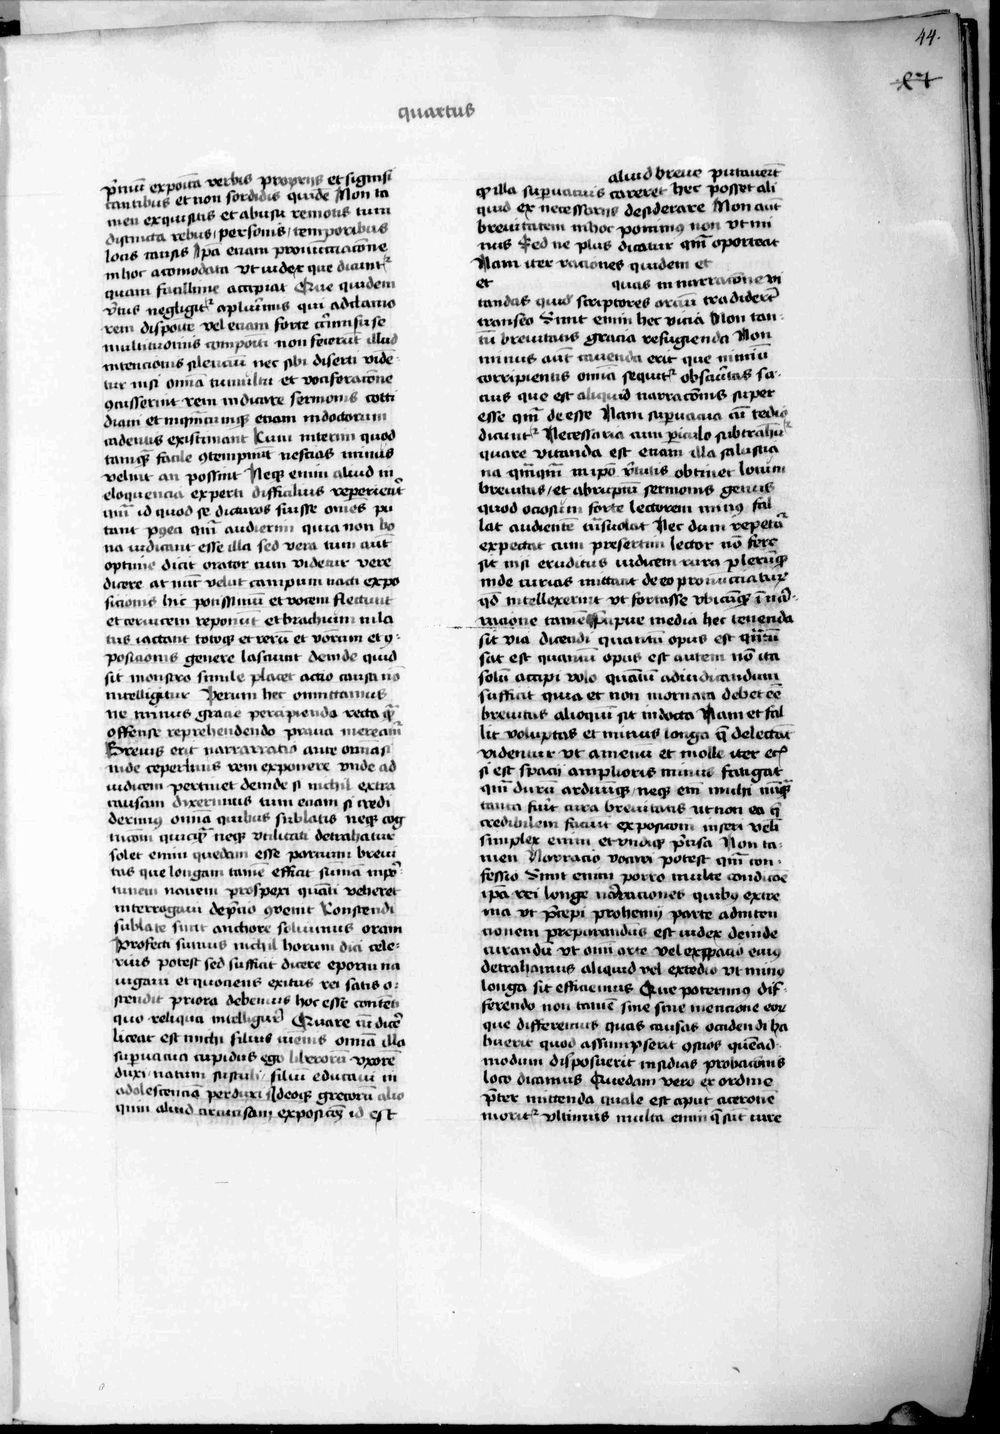 44.
quartus
p̄mū exposita verbis proprijs et signifi
cantibus et non sordidis quidē Non ta
men exquisitis et abusu remotis tum
distincta rebus / personis / temporibus
locis causis Ipā etiam pronūcciacōne
in hoc acomodata vt iudex que dicunt᷑
quam facillime accipiat Que quidem
v̄tus negligit᷑ a plurīmis qui ad clamo
rem disposite vel etiam forte circūfuse
multitudinis compositi non ferūt illud
intencionis silenciū nec sibi diserti vide
tur nisi om̄ia tumultu et vociferacōne
ꝯcusserint rem indicare sermonis cotti
diani et in quēcūqꝫ etiam indoctorum
cadentis existimant Cum interim quod
tamqꝫ facile ꝯtempnūt nescias minus
velint an possint Neqꝫ enim aliud in
eloquencia experti difficilius reperient᷑
qm̄ id quod se dicturos fuisse om̄es pu
tant pꝯea qm̄ audierint quia non bo
na iudicant esse illa sed vera tum aūt
optime dicit orator cum videtur vere
dicere at nūc velut campum nacti expo
sicionis hic potissimū et vocem flectunt
et ceruicem reponūt et brachium in la
tus iactant totoqꝫ et rerū et vorum et ꝯ-
posicionis genere lasciuūt deinde quid
sit monstro simile placet actio causa nō
intelligitur Verum hec omittamus
ne minus gracie precipiendo recta qꝫ
offense reprehendendo praua mereām᷑
Breuis erit narrarratio ante om̄ia si
inde ceperimus rem exponere vnde ad
iudicem pertinet deinde si nichil extra
causam dixerimus tum etiam si credi
derimꝯ om̄ia quibus sublatis neqꝫ cog
nicōni quicqꝫ neqꝫ vtilitati detrahatur
solet enim quedam esse parcium breui
tas que longam tamē efficit sūmā in por
tum in nauem prospexi quāti veheret
interrogaui de p̄cio ꝯuenit Conscendi
sublate sunt anchore soluimus oram
Profecti sumus nichil horum dici cele-
rius potest sed sufficit dicere e portu na
uigaui et quociens exitus rei satis o-
stendit priora debemus hoc esse contēti
quo reliqua intelligunt᷑ Quare cū dice᷑
liceat est michi filius iuuenis om̄ia illa
supuacua cupidus ego liberorū vxorē
duxi / natum sustuli / filiū educaui in
adolescenciā perduxi Ideoqꝫ grecorū alio
quin aliud circūcisam expositōꝫ id est
aliud breue putauerūt
ꝙ illa supuacuis careret hec posset ali
quid ex necessarijs desiderare Non aūt
breuitatem in hoc ponimꝯ non vt mi
nus Sed ne plus dicatur qm̄ oporteat
Nam iter raciones quidem et
et quas in narracōne vi
tandas quid scriptores arciū tradiderūt
transeo Sunt enim hec vicia Non tan-
tū breuitatis gracia refugienda Non
minus aūt cauenda erit que nimiū
corripientis om̄ia sequit᷑ obscuritas sa-
cius que est aliquid narracōnis super
esse qm̄ de esse Nam supuacua cū tedio
dicunt᷑ Necessaria cum piculo subtrahūt᷑
quare vitanda est etiam illa salustia
na qm̄qm̄ in ipō v̄tutis obtinet locum
breuitas / et abruptū sermonis genus
quod ociosum forte lectorem minꝯ fal
lat audientē transuolat Nec dum repetat᷑
expectat cum presertim lector nō fere
sit nisi eruditus iudicem rura plerūqꝫ
inde curias mittant de eo pronūcciatur᷑
qd̄ intellexerint vt fortasse vbicūqꝫ in nar-
racione tamē p̄cipue media hec tenenda
sit via dicendi quantū opus est quātū
sat est quantū opus est autem nō ita
solū accipi volo quātū ad iudicandum
sufficit quia et non inornata debet eē
breuitas alioquin sit indocta Nam et fal
lit voluptas et minus longa q̄ delectāt
videntur vt amenū et molle iter eciā
si est spacij amplioris minus fatigat
qm̄ durū arduūqꝫ neqꝫ em̄ michi nūqꝫ
tanta fuerit cura breuitatis vt non ea q̄
credibilem faciūt exposicōem inseri velī
simplex enim et vndiqꝫ p̄cisa Non ta-
men Narracio vocari potest qm̄ con-
fessio Sunt enim porro multe condicōe
ipā rei longe narraciones quibꝯ extre
ma vt p̄cepi prohemij parte ad inten
cionem preparandus est iudex deinde
curandū vt om̄i arte vel ex spacio eius
detrahamus aliquid vel ex tedio vt minꝯ
longa sit efficiemus Que poterimꝯ dif-
ferendo non tamē sine sine mencione eor
que differemus quas causas occidendi ha
buerit quod assumpserit ꝯscios quēad-
modum disposuerit insidias probacōnis
loco dicamus Quedam vero ex ordine
p̄termittenda quale est aput ciceronē
morit᷑ vltimus multa enim q̄ sūt iure